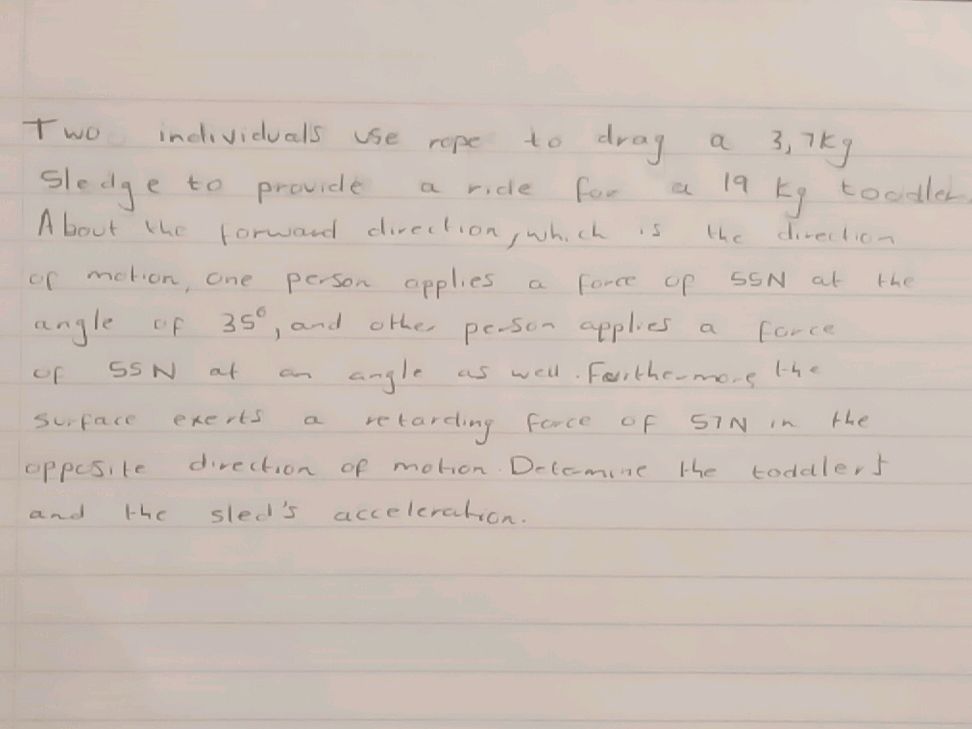 Two individuals use rope to drag a 3,7kg
Sledge to provide a ride for a 19 kg toddler.
About the forward direction, which is the direction
of motion, one person applies a force of 55N at the
angle of 35°, and other person applies a force
of 55N at an angle as well. Furthermore the
surface exerts a retarding force of 57N in the
opposite direction of motion. Detemine the toddler's
and the sled's acceleration.